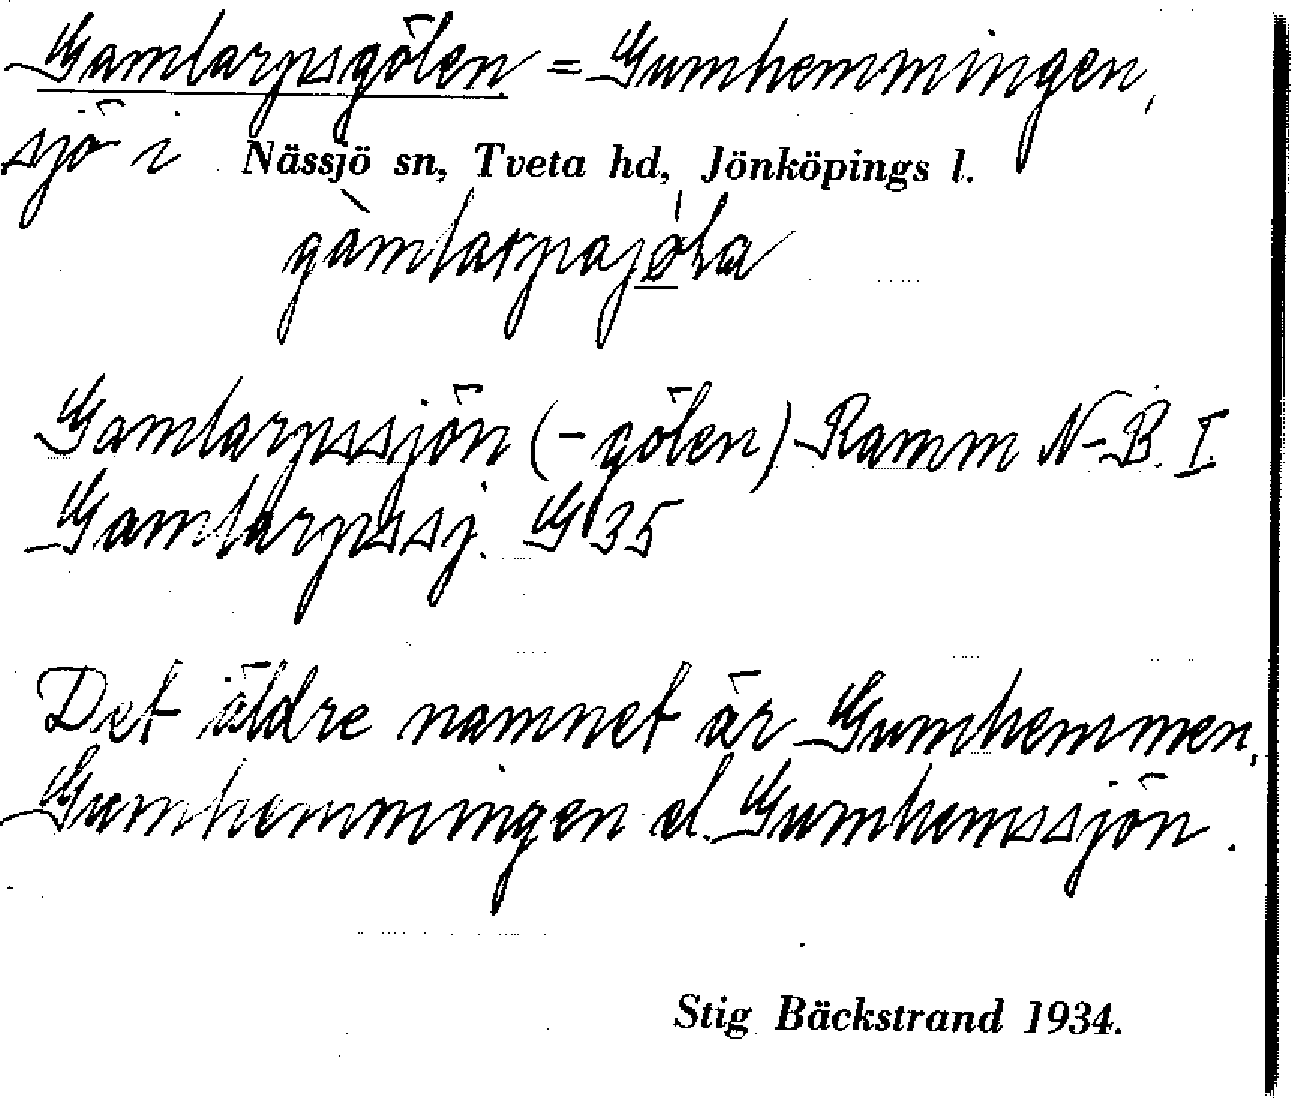 Gamlarpsgölen = Gumhemmingen,
sjö i Nässjö sn, Tveta hd, Jönköpings l.
gàmlarpajǿ̲la
Gamlarpssjön (-gölen) Ramm N-B. I
Gamlarpssj. G 35
Det äldre namnet är Gumhemmen,
Gumhemmingen el. Gumhemssjön.
Stig Bäckstrand 1934.